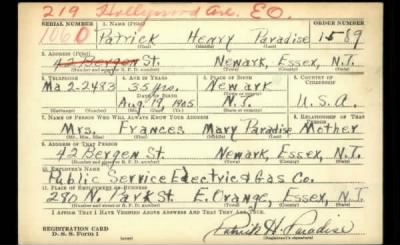 219 Hollywood Ave. E.O.
SERIAL NUMBER 1. NAME (Print) ORDER NUMBER
1060 Patrick Henry Paradise 1589
(First) (Middle) (Last)
2. ADDRESS (Print)
42 Bergen St. Newark, Essex, N.J.
3. TELEPHONE 4. AGE IN YEARS 5. PLACE OF BIRTH 6. COUNTRY OF CITIZENSHIP
Ma 2-2483 35 yrs. Newark
DATE OF BIRTH
Aug 17, 1905 N.J. U.S.A.
7. NAME OF PERSON WHO WILL ALWAYS KNOW YOUR ADDRESS 8. RELATIONSHIP OF THAT PERSON
Mrs. Frances Mary Paradise Mother
9. ADDRESS OF THAT PERSON
42 Bergen St. Newark, Essex, N.J.
10. EMPLOYER'S NAME
Public Service Electric & Gas Co.
11. PLACE OF EMPLOYMENT OR BUSINESS
280 N. Park St. E. Orange, Essex, N.J.
I AFFIRM THAT I HAVE VERIFIED ABOVE ANSWERS AND THAT THEY ARE TRUE.
REGISTRATION CARD
D. S. S. Form 1
Patrick H. Paradise
(Registrant's signature)